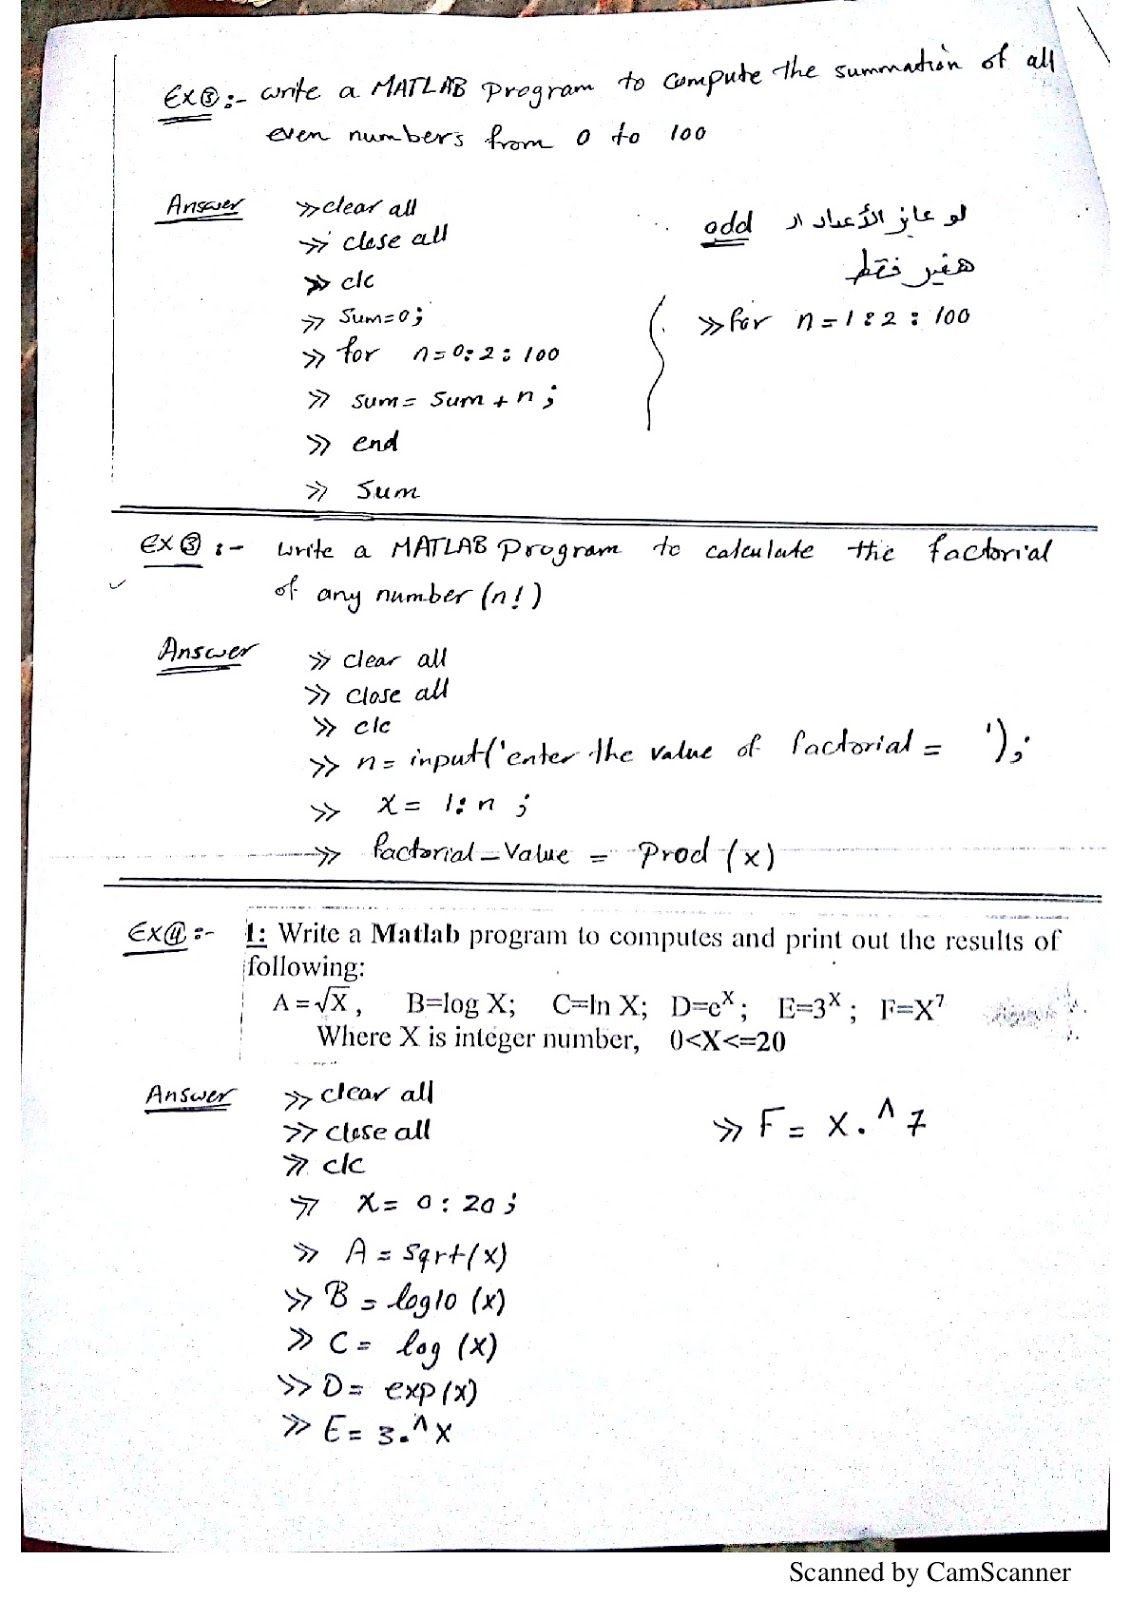 Ex③:- write a MATLAB Program to compute the summation of all
even numbers from 0 to 100
Answer
>> clear all
>> close all
>> clc
>> Sum=0;
>> for n=0:2:100
>> sum= sum+n;
>> end
>> Sum
لو عايز الأعداد ال odd
هغير فقط
>> for n=1:2:100
Ex③:- write a MATLAB Program to calculate the factorial
of any number (n!)
Answer
>> clear all
>> close all
>> clc
>> n= input('enter the value of factorial = ');
>> x= 1:n ;
>> factorial_Value = Prod (x)
Ex④:- 1: Write a Matlab program to computes and print out the results of
following:
A=√X, B=log X; C=ln X; D=eˣ; E=3ˣ; F=X⁷
Where X is integer number, 0<X<=20
Answer
>> clear all
>> close all
>> clc
>> X= 0:20;
>> A= sqrt(x)
>> B= log10 (x)
>> C= log (x)
>> D= exp(x)
>> E= 3.^X
>> F= X.^7
Scanned by CamScanner